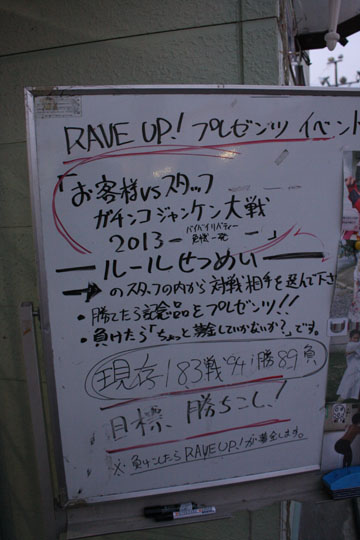 RAVE UP! プレゼンツ イベント
「お客様vsスタッフ
ガチンコジャンケン大戦
2013ー バイバイリバティー ー」
ールールせつめいー
→のスタッフの内から対戦相手を選んで下さ
・勝てたら記念品をプレゼンツ!!
・負けたら「ちょっと募金していかないか?」です。
現在183戦94勝89負
目標 勝ちこし!
※負けこしたらRAVE UP!が募金します。